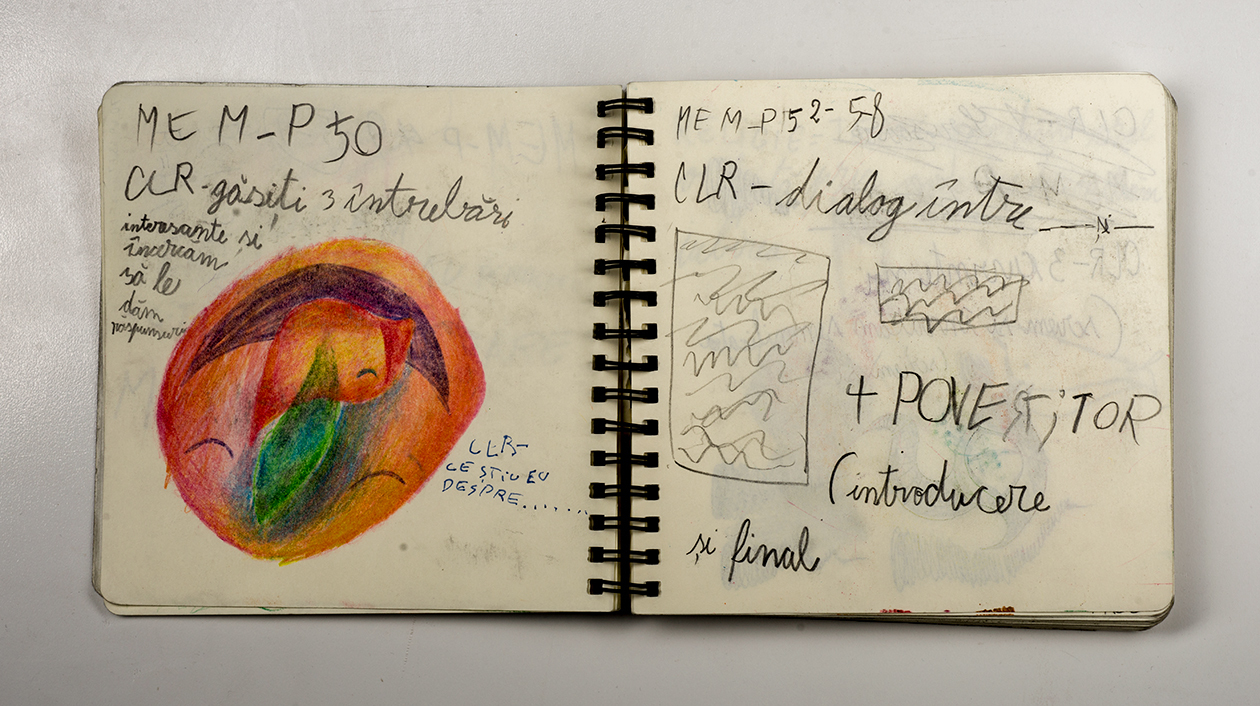 MEM-P50
CLR-găsiți 3 întrebări
interesante și
încercăm
să le
dăm
răspunsuri
CLR-
CE ȘTIU EU
DESPRE.......
MEM-P52-58
CLR - dialog între ___ și ___
+ POVESTITOR
(introducere
și final